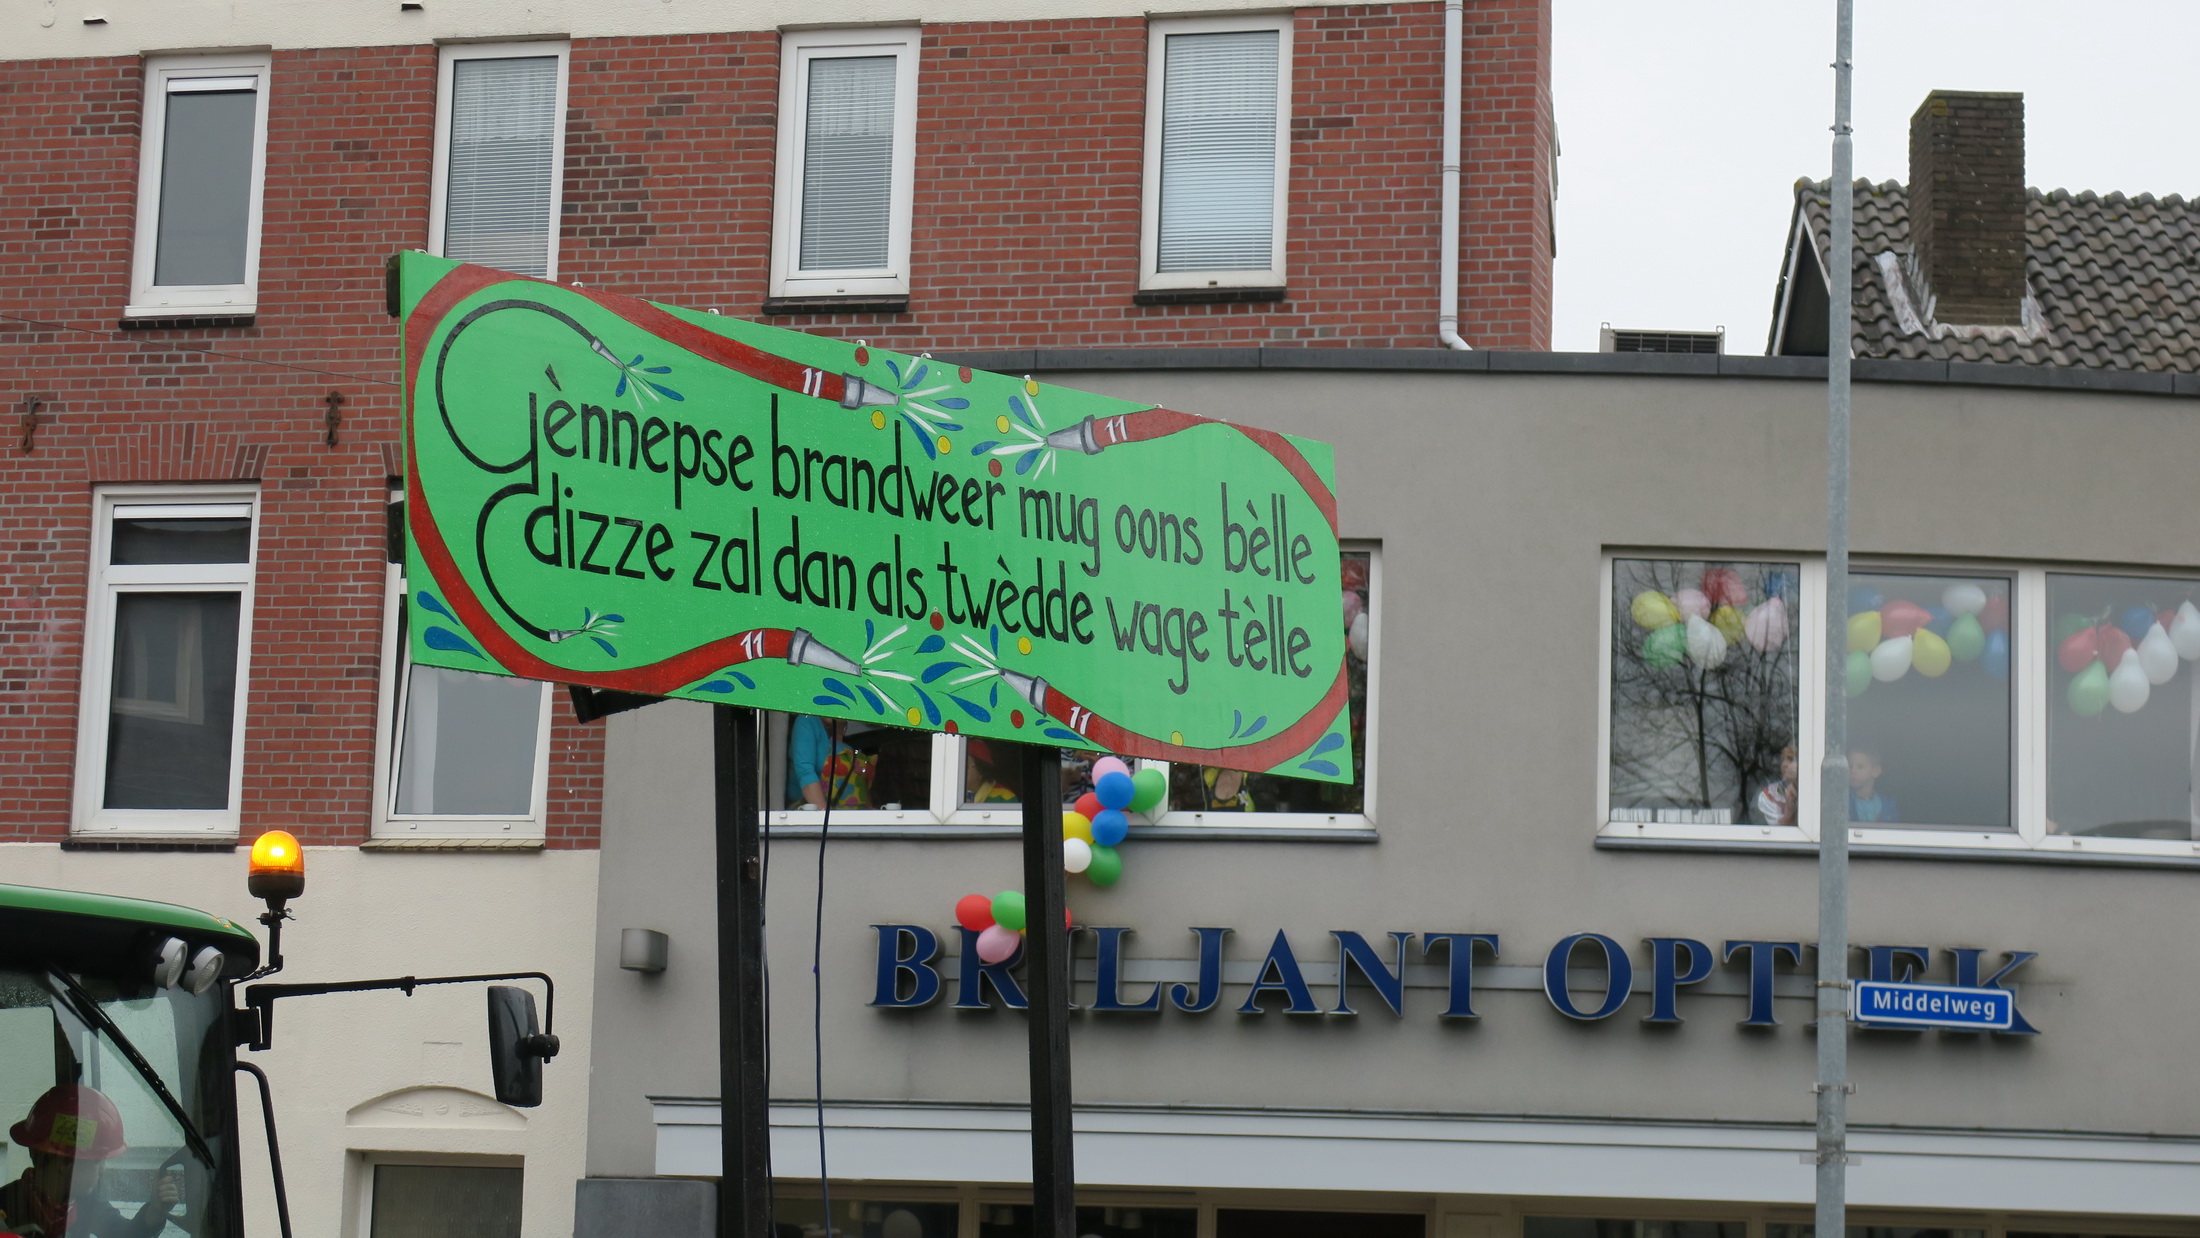 Gènnepse brandweer mug oons bèlle
dizze zal dan als twèdde wage tèlle
11
11
11
11
BRILJANT OPTIEK
Middelweg